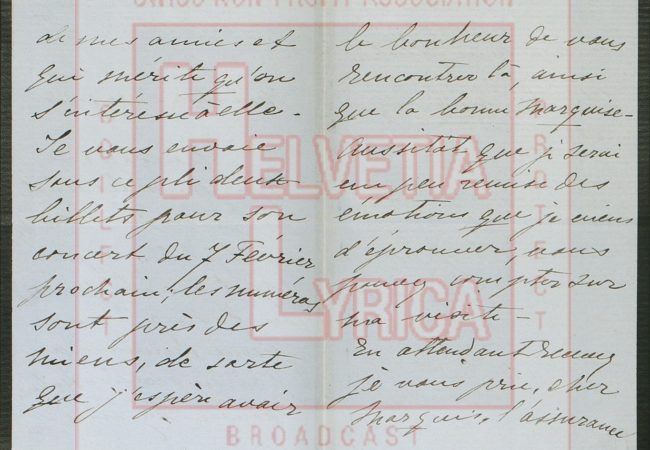 SWISS NON PROFIT ASSOCIATION
de mes amies et
qui mérite qu'on
s'intéresse à elle.
Je vous envoie
sous ce pli deux
billets pour son
concert du 7 Février
prochain, les numéros
sont près des
miens, de sorte
que j'espère avoir
le bonheur de vous
rencontrer là, ainsi
que la bonne Marquise.
Aussitôt que je serai
un peu remise des
émotions que je viens
d'éprouver, vous
pouvez compter sur
ma visite -
En attendant
je vous prie, cher
Marquis, l'assurance
HELVETIA
LYRICA
COLLECT
PROTECT
BROADCAST